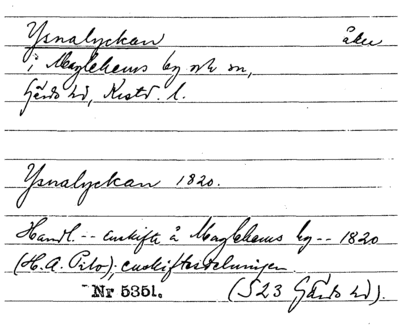 Ysnalyckan åker
i Maglehems by och sn,
Gärds hd, Krist. l.
Ysnalyckan 1820.
Handl. -- enskifte å Maglehems by -- 1820
(H. A. Pilo); enskiftesdelningen
Nr 5351. (S 23 Gärds hd).